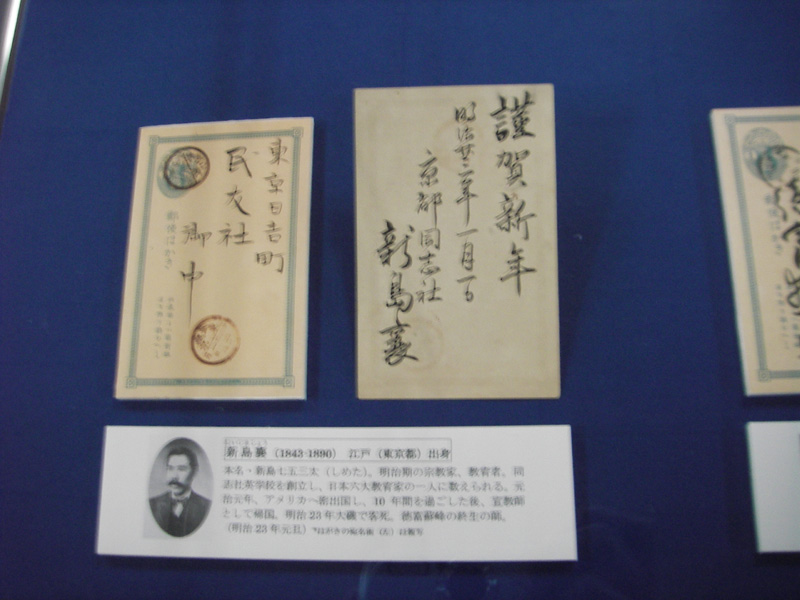 東京日吉町
民友社
御中
郵便はがき
謹賀新年
明治廿三年一月一日
京都同志社
新島襄
新島襄 (1843-1890) 江戸（東京都）出身
本名・新島七五三太（しめた）。明治期の宗教家、教育者。同
志社英学校を創立し、日本六大教育家の一人に数えられる。元
治元年、アメリカへ密出国し、10年間を過ごした後、宣教師
として帰国。明治23年大磯で客死。徳富蘇峰の終生の師。
（明治23年元旦）*はがきの宛名面（左）は複写